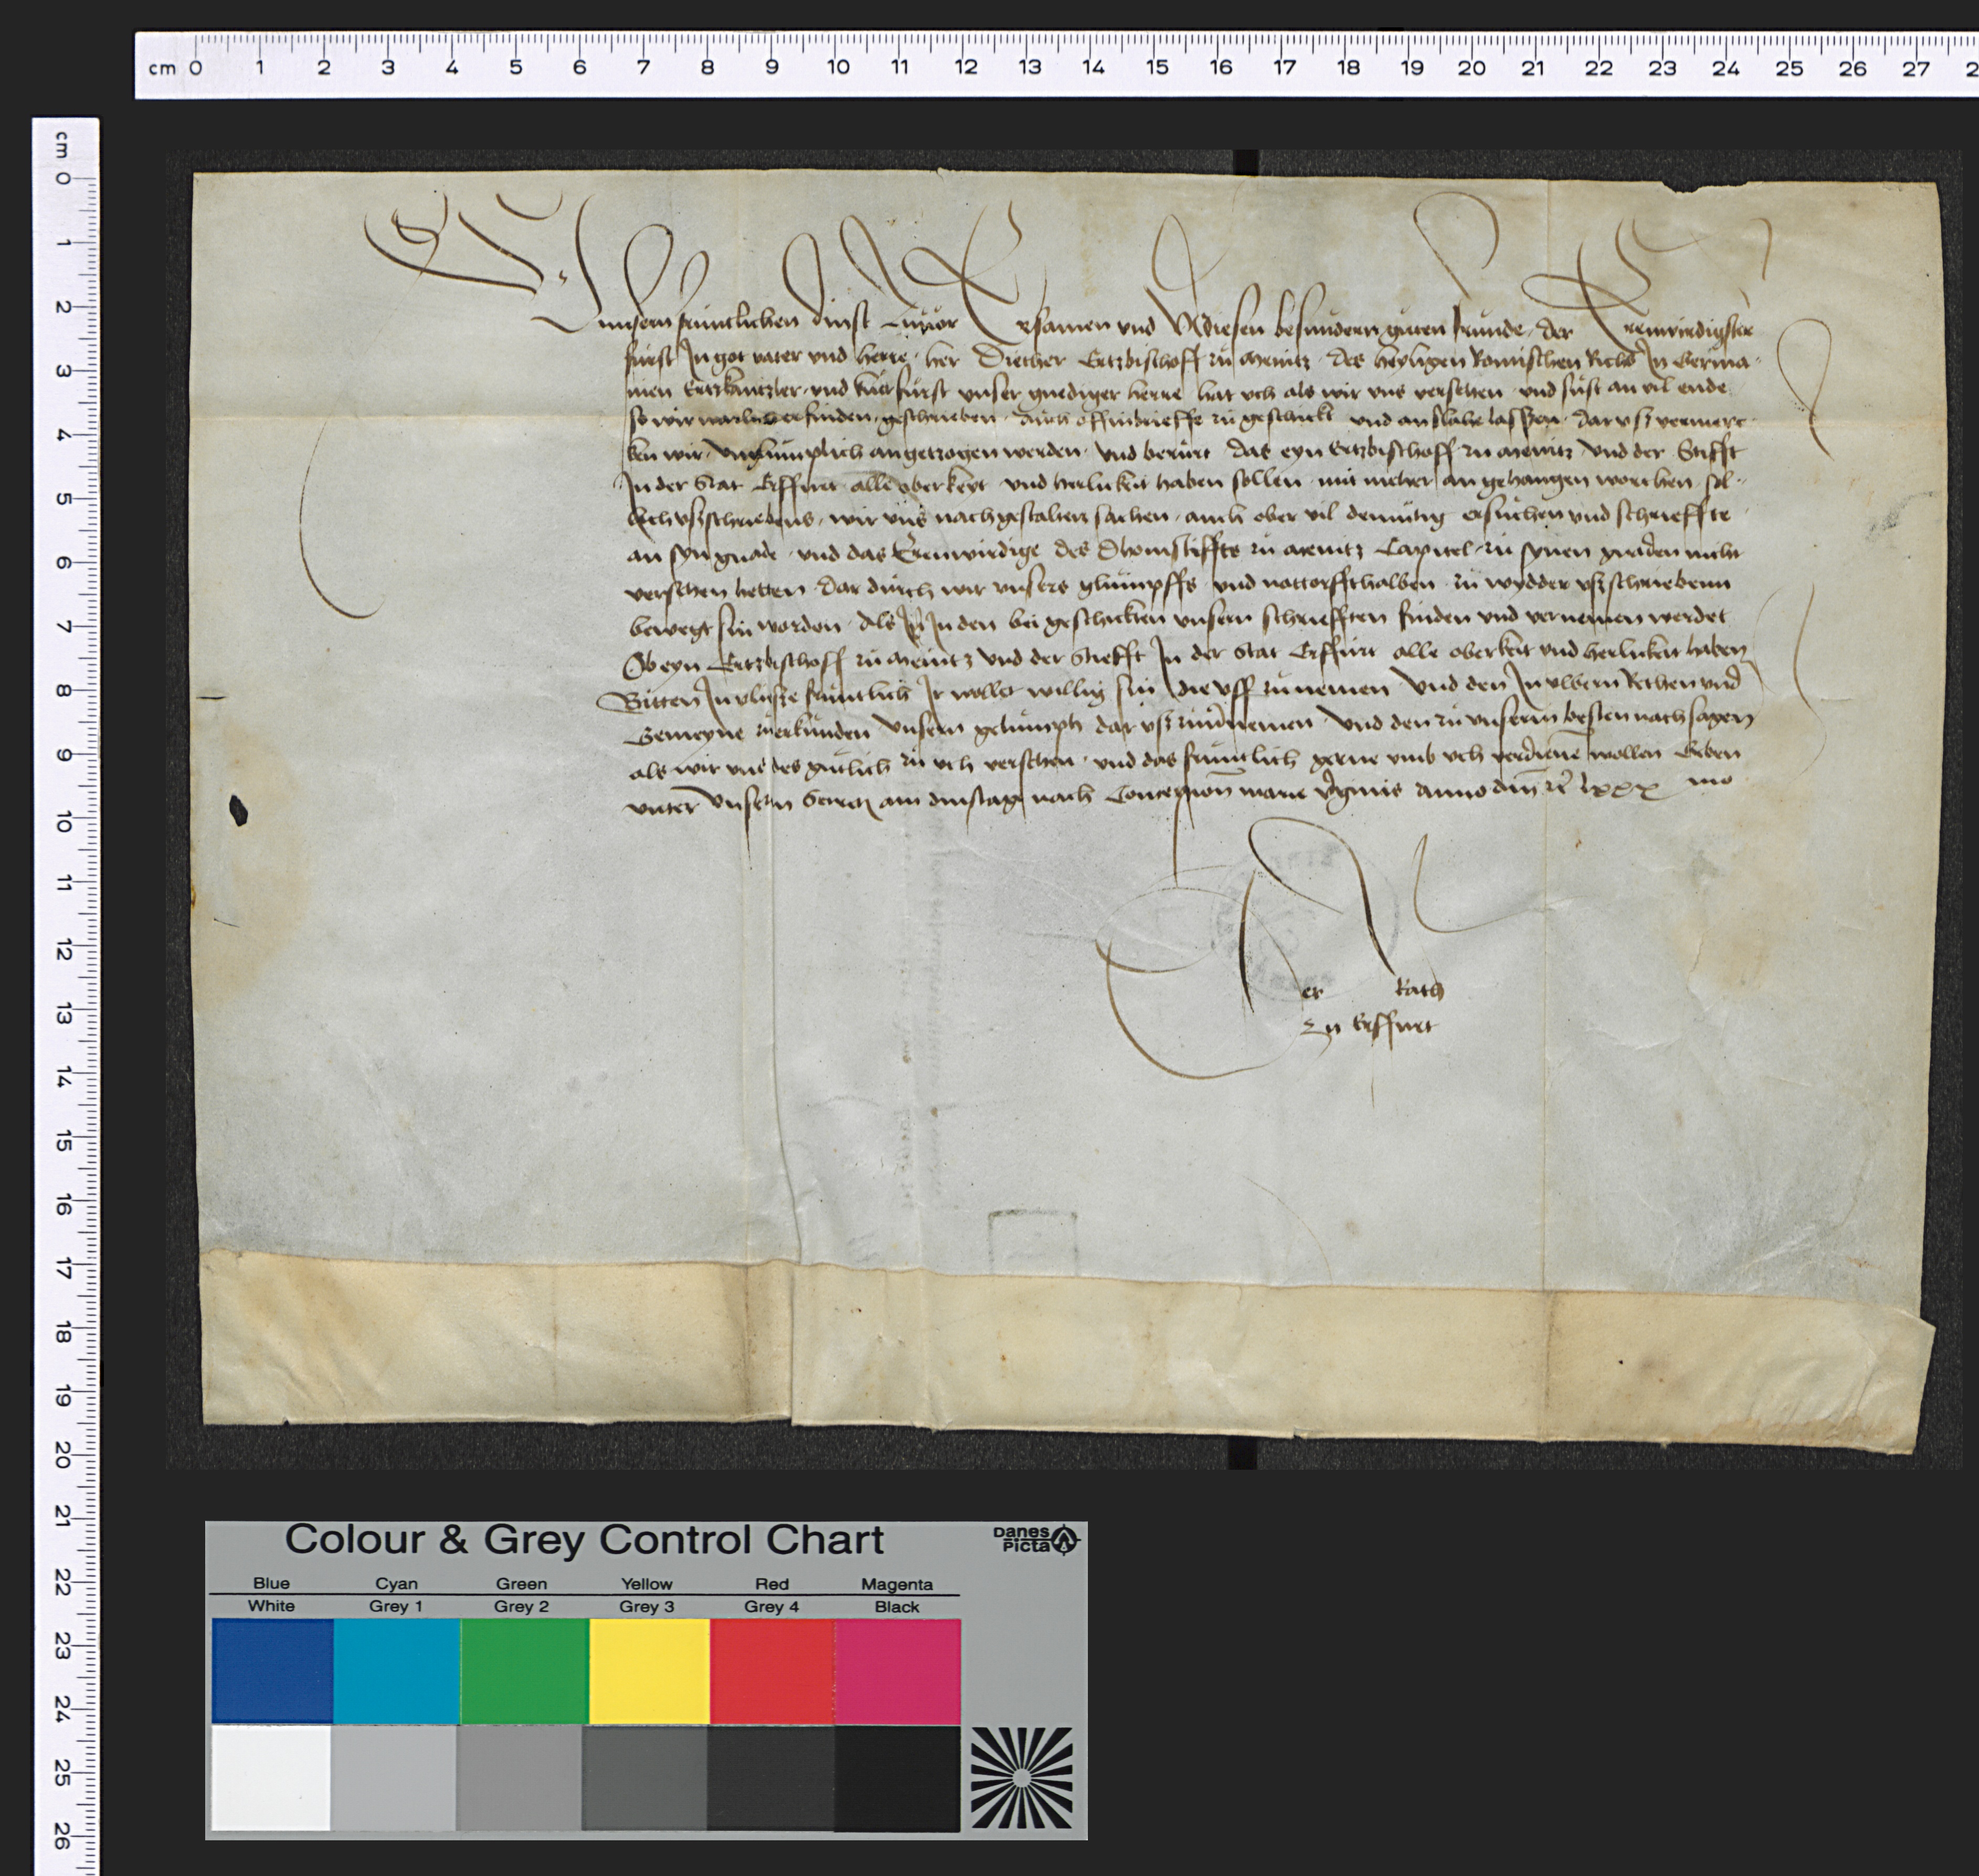 cm 0 1 2 3 4 5 6 7 8 9 10 11 12 13 14 15 16 17 18 19 20 21 22 23 24 25 26 27
cm 0 1 2 3 4 5 6 7 8 9 10 11 12 13 14 15 16 17 18 19 20 21 22 23 24 25 26
Unnsern fruntlichen dinst zuuor Ersamen vnd Wiesen besundern guten frunde, der Erenwirdigster
furst In got vater vnd herre, her Diether Ertzbischoff zu Meintz, des heyligen Romischen Richs In Germa-
nien Ertzkantzler, vnd kurfurst vnser gnediger herre hat uch als wir vns versehen, vnd sust an vil ende
so wir warlich erfinden, geschrieben, auch offinbrieffe zu geschickt vnd anslahe lassen, dar vß vermerc-
ken wir, vnglumplich angetzogen werden, vnd berurt das eyn Ertzbischoff zu Meintz vnd der Stifft
In der Stat Erffurt alle oberkeyt vnd herlickeit haben sollen, mit meher angehangen worthen, sol-
lich vßschriebens, wir vns nach gestalten sachen, auch ober vil demutig ersuchen vnd schriffte
an syn gnade, vnd das Erenwirdige des Dhomstiffts zu Meintz Capittel, zu synen gnaden nicht
versehen hetten, dar durch wir vnsers glumpffs vnd nottorffthalben, zu wydder vßschriebenn
bewegt sin worden, als Ir In den bei geschickten vnsern schriefften finden vnd vernemen werdet
Ob eyn Ertzbischoff zu Meintz vnd der Stiefft In der Stat Erffurt alle oberkeit vnd herlickeit haben
Bitten In vlisße fruntlich Ir wollet willig sin die vff zunemen vnd den In uwern Rethen vnd
Gemeyne zuerkunden vnsern gelumph dar vß zuuernemen, vnd den zu vnserm besten nach sagen
als wir vns des gutlich zu uch versehen, vnd das fruntlich gerne vmb uch verdienen wollen Geben
vnter vnserm Secret am dinstage nach Concepcionis marie virginis anno dm̄ rc̄ lxxx mo
Der Rath
Zu Erffurt
Colour & Grey Control Chart
Danes
Picta
Blue Cyan Green Yellow Red Magenta
White Grey 1 Grey 2 Grey 3 Grey 4 Black